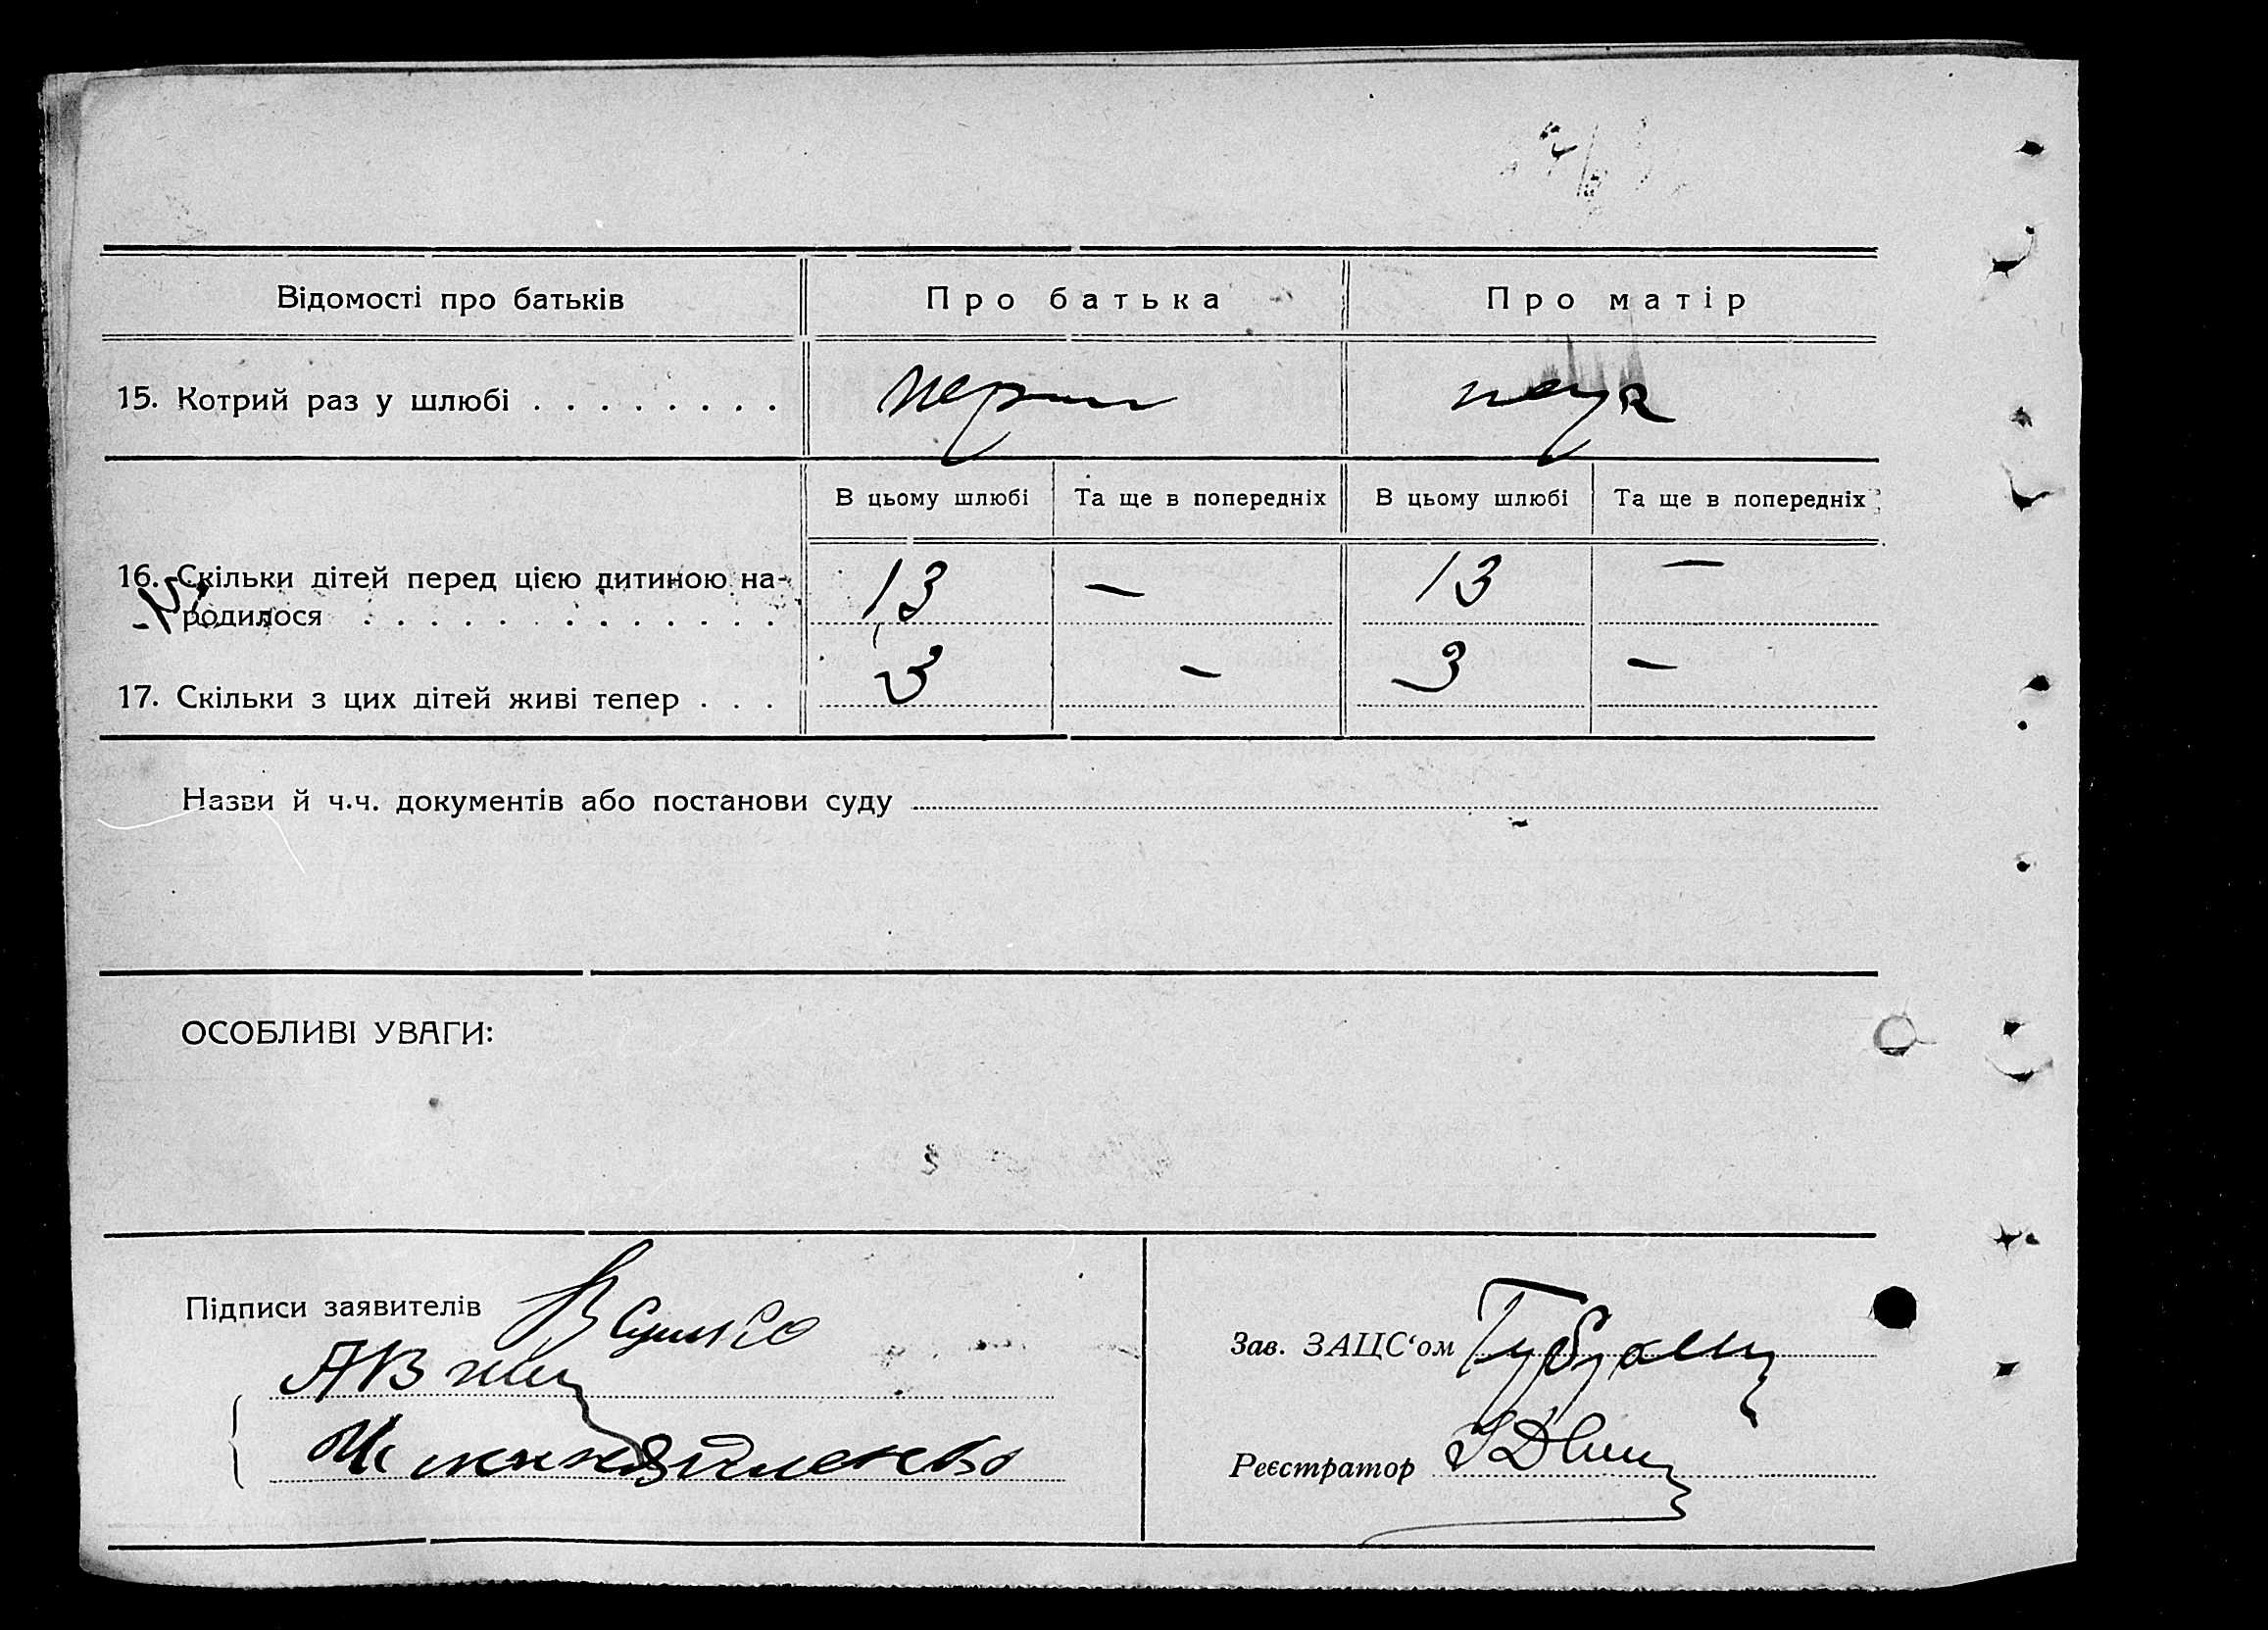 Відомості про батьків Про батька Про матір
15. Котрий раз у шлюбі . . . . . . . .
В цьому шлюбі Та ще в попередніх В цьому шлюбі Та ще в попередніх
16. Скільки дітей перед цією дитиною на-
родилося . . . . . . . . . . . . . 13 — 13 —
17. Скільки з цих дітей живі тепер . . . 3 — 3 —
Назви й ч.ч. документів або постанови суду
ОСОБЛИВІ УВАГИ:
Підписи заявителів
Зав. ЗАЦС‘ом
Реєстратор